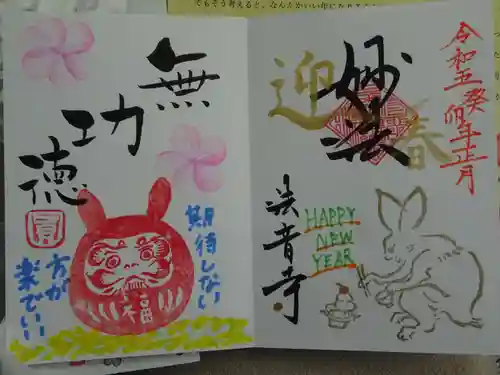 でもそう考えると、なんだかいい年に
令和五癸卯年正月
迎春
妙法
法音寺
HAPPY
NEW
YEAR
無
功
徳
期待しない
方が
楽でいい
福